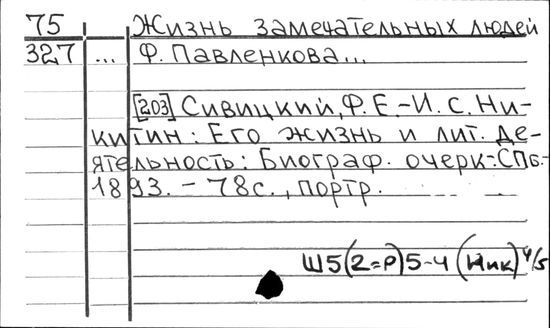 75 Жизнь замечательных людей
327 ... Ф. Павленкова...
[203] Сивицкий, Ф. Е. - И. С. Ни-
китин: Его жизнь и лит. де-
ятельность: Биограф. очерк.-СПб.-
1893. - 78с., портр.
Ш5(2=Р)5-4 (Ник) 4/5